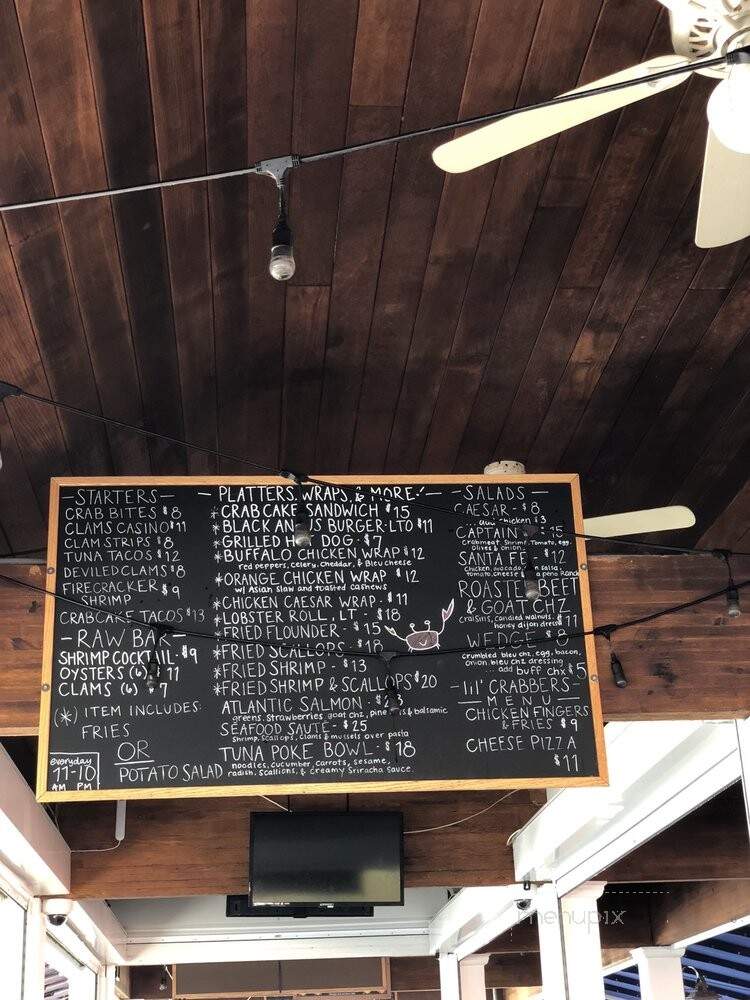 -STARTERS-
CRAB BITES $8
CLAMS CASINO $11
CLAM STRIPS $8
TUNA TACOS $12
DEVILED CLAMS $8
FIRECRACKER $9
SHRIMP
CRABCAKE TACOS $13
-RAW BAR-
SHRIMP COCKTAIL- $9
OYSTERS (6) 11
CLAMS (6) 7
(*) ITEM INCLUDES:
FRIES
OR
POTATO SALAD
everyday
11-10
AM PM
- PLATTERS, WRAPS, & MORE! -
*CRAB CAKE SANDWICH $15
*BLACK ANGUS BURGER-LTO $11
*GRILLED HOT DOG- $7
*BUFFALO CHICKEN WRAP $12
red peppers, celery, cheddar, & Bleu cheese
*ORANGE CHICKEN WRAP $12
w/ Asian slaw and toasted cashews
*CHICKEN CAESAR WRAP- $11
*LOBSTER ROLL, LT - $18
*FRIED FLOUNDER- $15
*FRIED SCALLOPS $18
*FRIED SHRIMP - $13
*FRIED SHRIMP & SCALLOPS $20
ATLANTIC SALMON-
greens, strawberries, goat chz, & balsamic
SEAFOOD SAUTÉ- $25
Shrimp, scallops, clams & mussels over pasta
TUNA POKE BOWL- $18
noodles, cucumber, carrots, sesame,
radish, scallions, & creamy sriracha sauce.
- SALADS -
CAESAR- $8
add chicken $3
CAPTAIN 15
crabmeat, shrimp, tomato, egg,
olives & onion
SANTA FE- $12
chicken, avocado, salsa,
tomato, cheese & Ranch
ROASTED BEET
& GOAT CHZ
craisins, candied walnuts,
honey dijon dress $11
WEDGE $8
crumbled bleu chz, egg, bacon,
onion, bleu chz dressing
... add buff chx $5
-lil' CRABBERS-
- MENU -
CHICKEN FINGERS
& FRIES $9
CHEESE PIZZA
$11
menupix